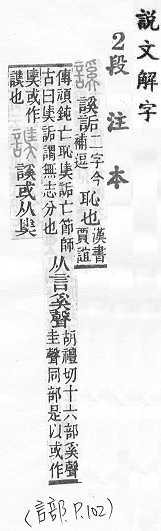 說文解字
2段注本
謑 謑詬二字今補逗恥也漢書賈誼
傳頑鈍亡恥奊詬亡節師古曰奊詬謂無志分也从言奚聲胡禮切十六部奚聲圭聲同部是以或作
奊或作謑也 謑或从奊
(言部 P.102)